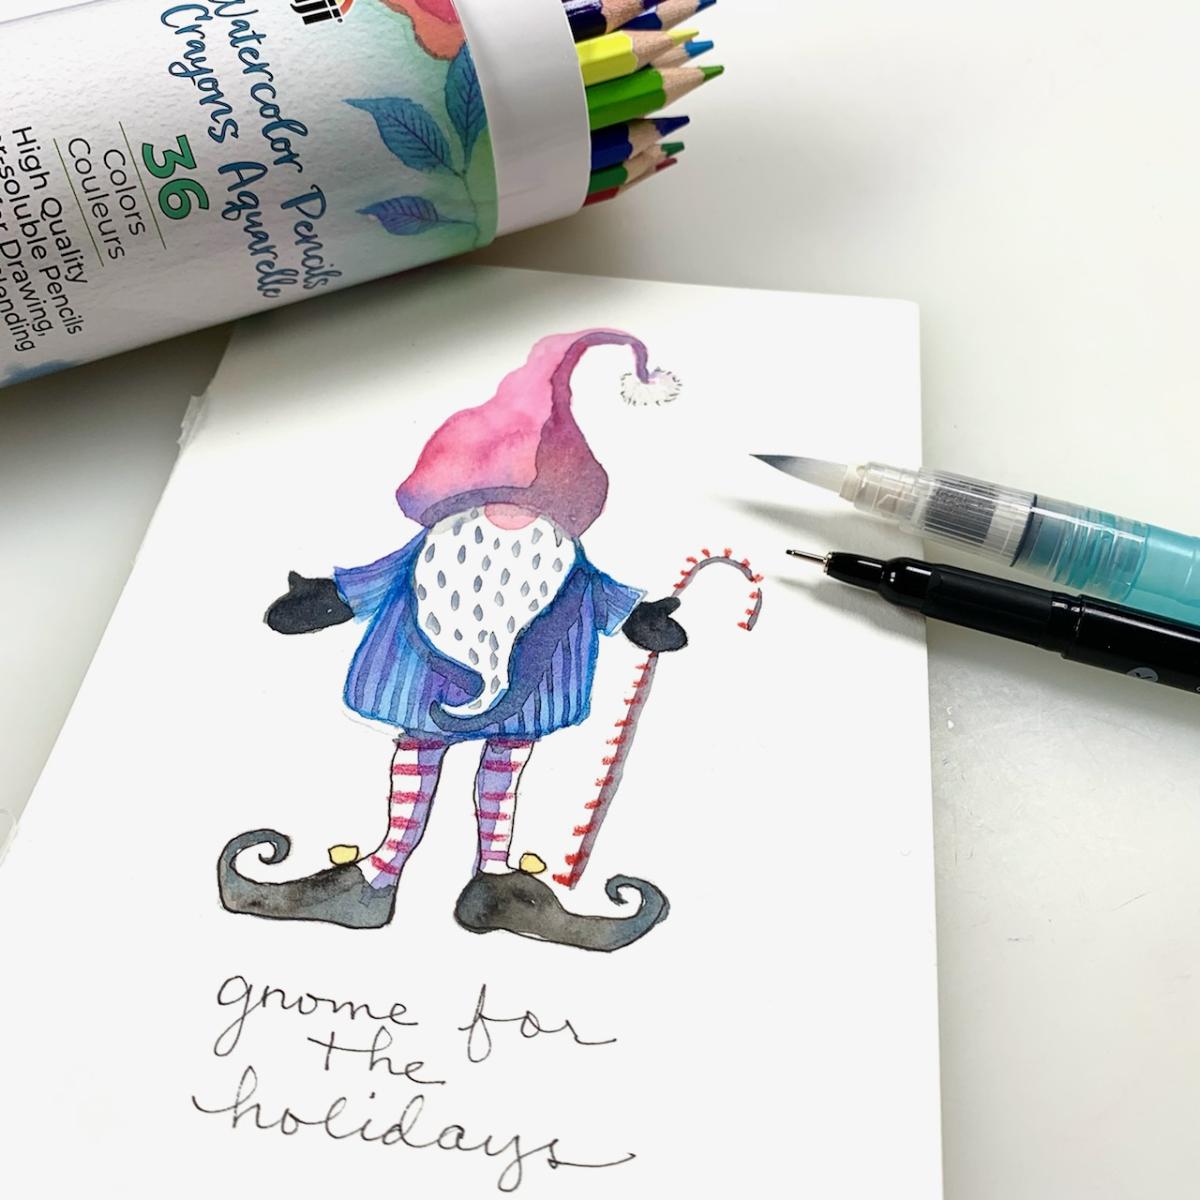 Watercolor Pencils
Crayons Aquarelle
36
Colors
Couleurs
High Quality
Pencils
Drawing,
gnome for
the
holidays